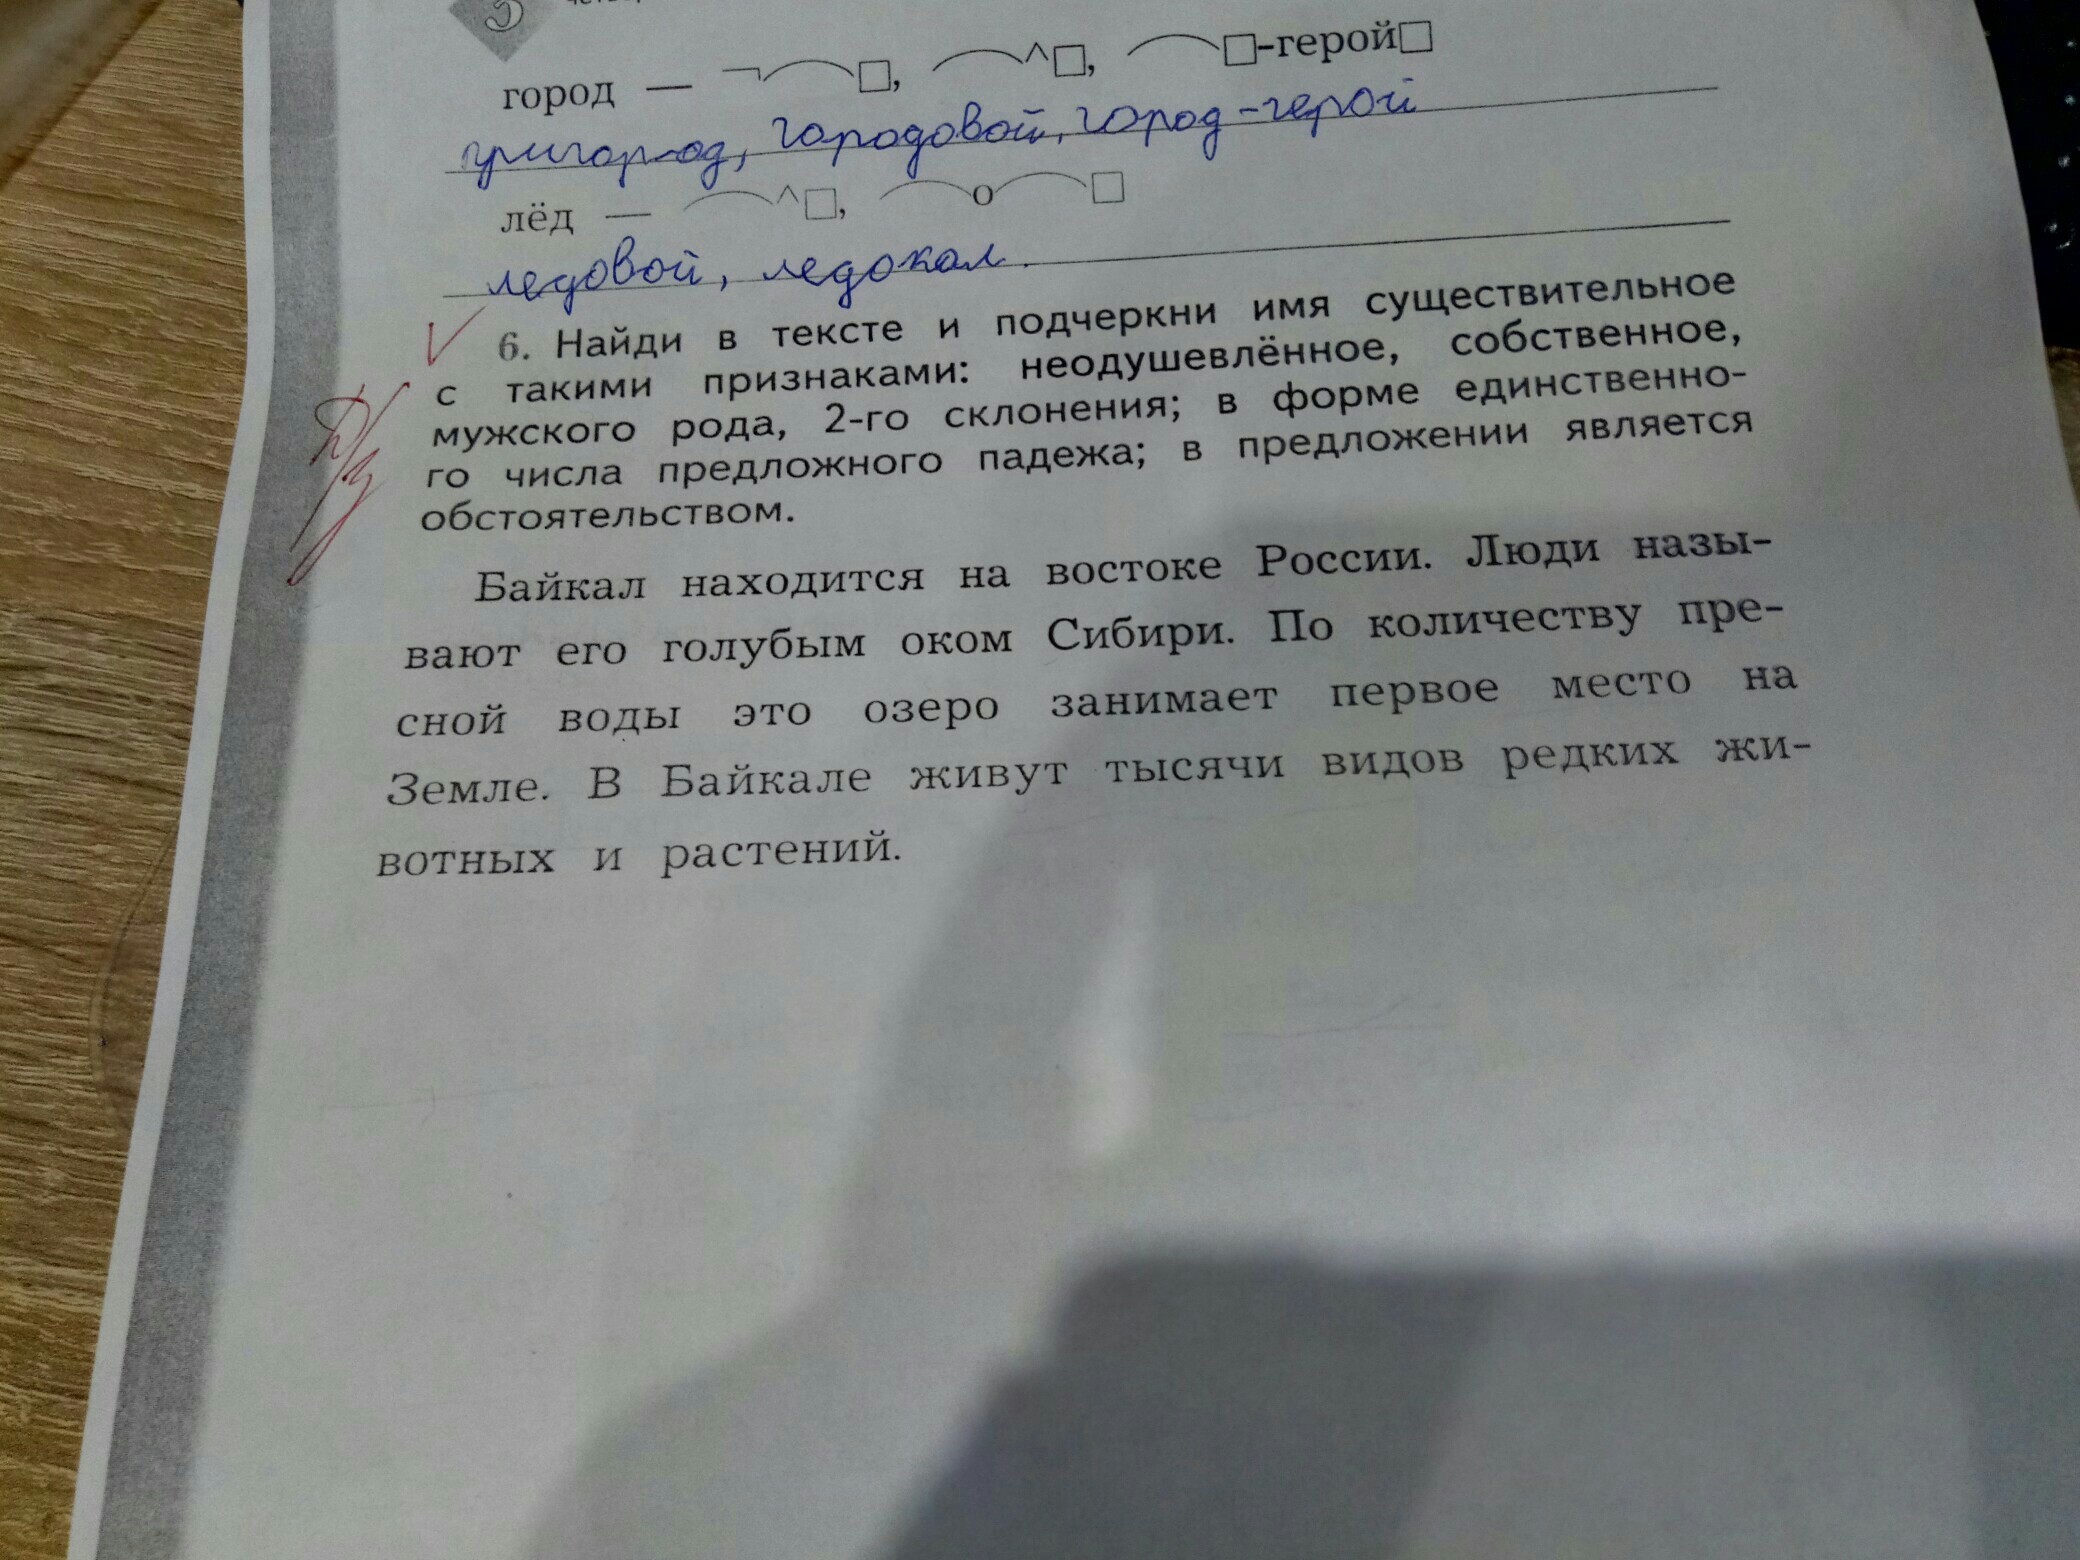 город — □, □, □-герой□
пригород, городовой, город-герой
лёд — □, о □
ледовой, ледокал.
6. Найди в тексте и подчеркни имя существительное
с такими признаками: неодушевлённое, собственное,
мужского рода, 2-го склонения; в форме единственно-
го числа предложного падежа; в предложении является
обстоятельством.
Байкал находится на востоке России. Люди назы-
вают его голубым оком Сибири. По количеству пре-
сной воды это озеро занимает первое место на
Земле. В Байкале живут тысячи видов редких жи-
вотных и растений.